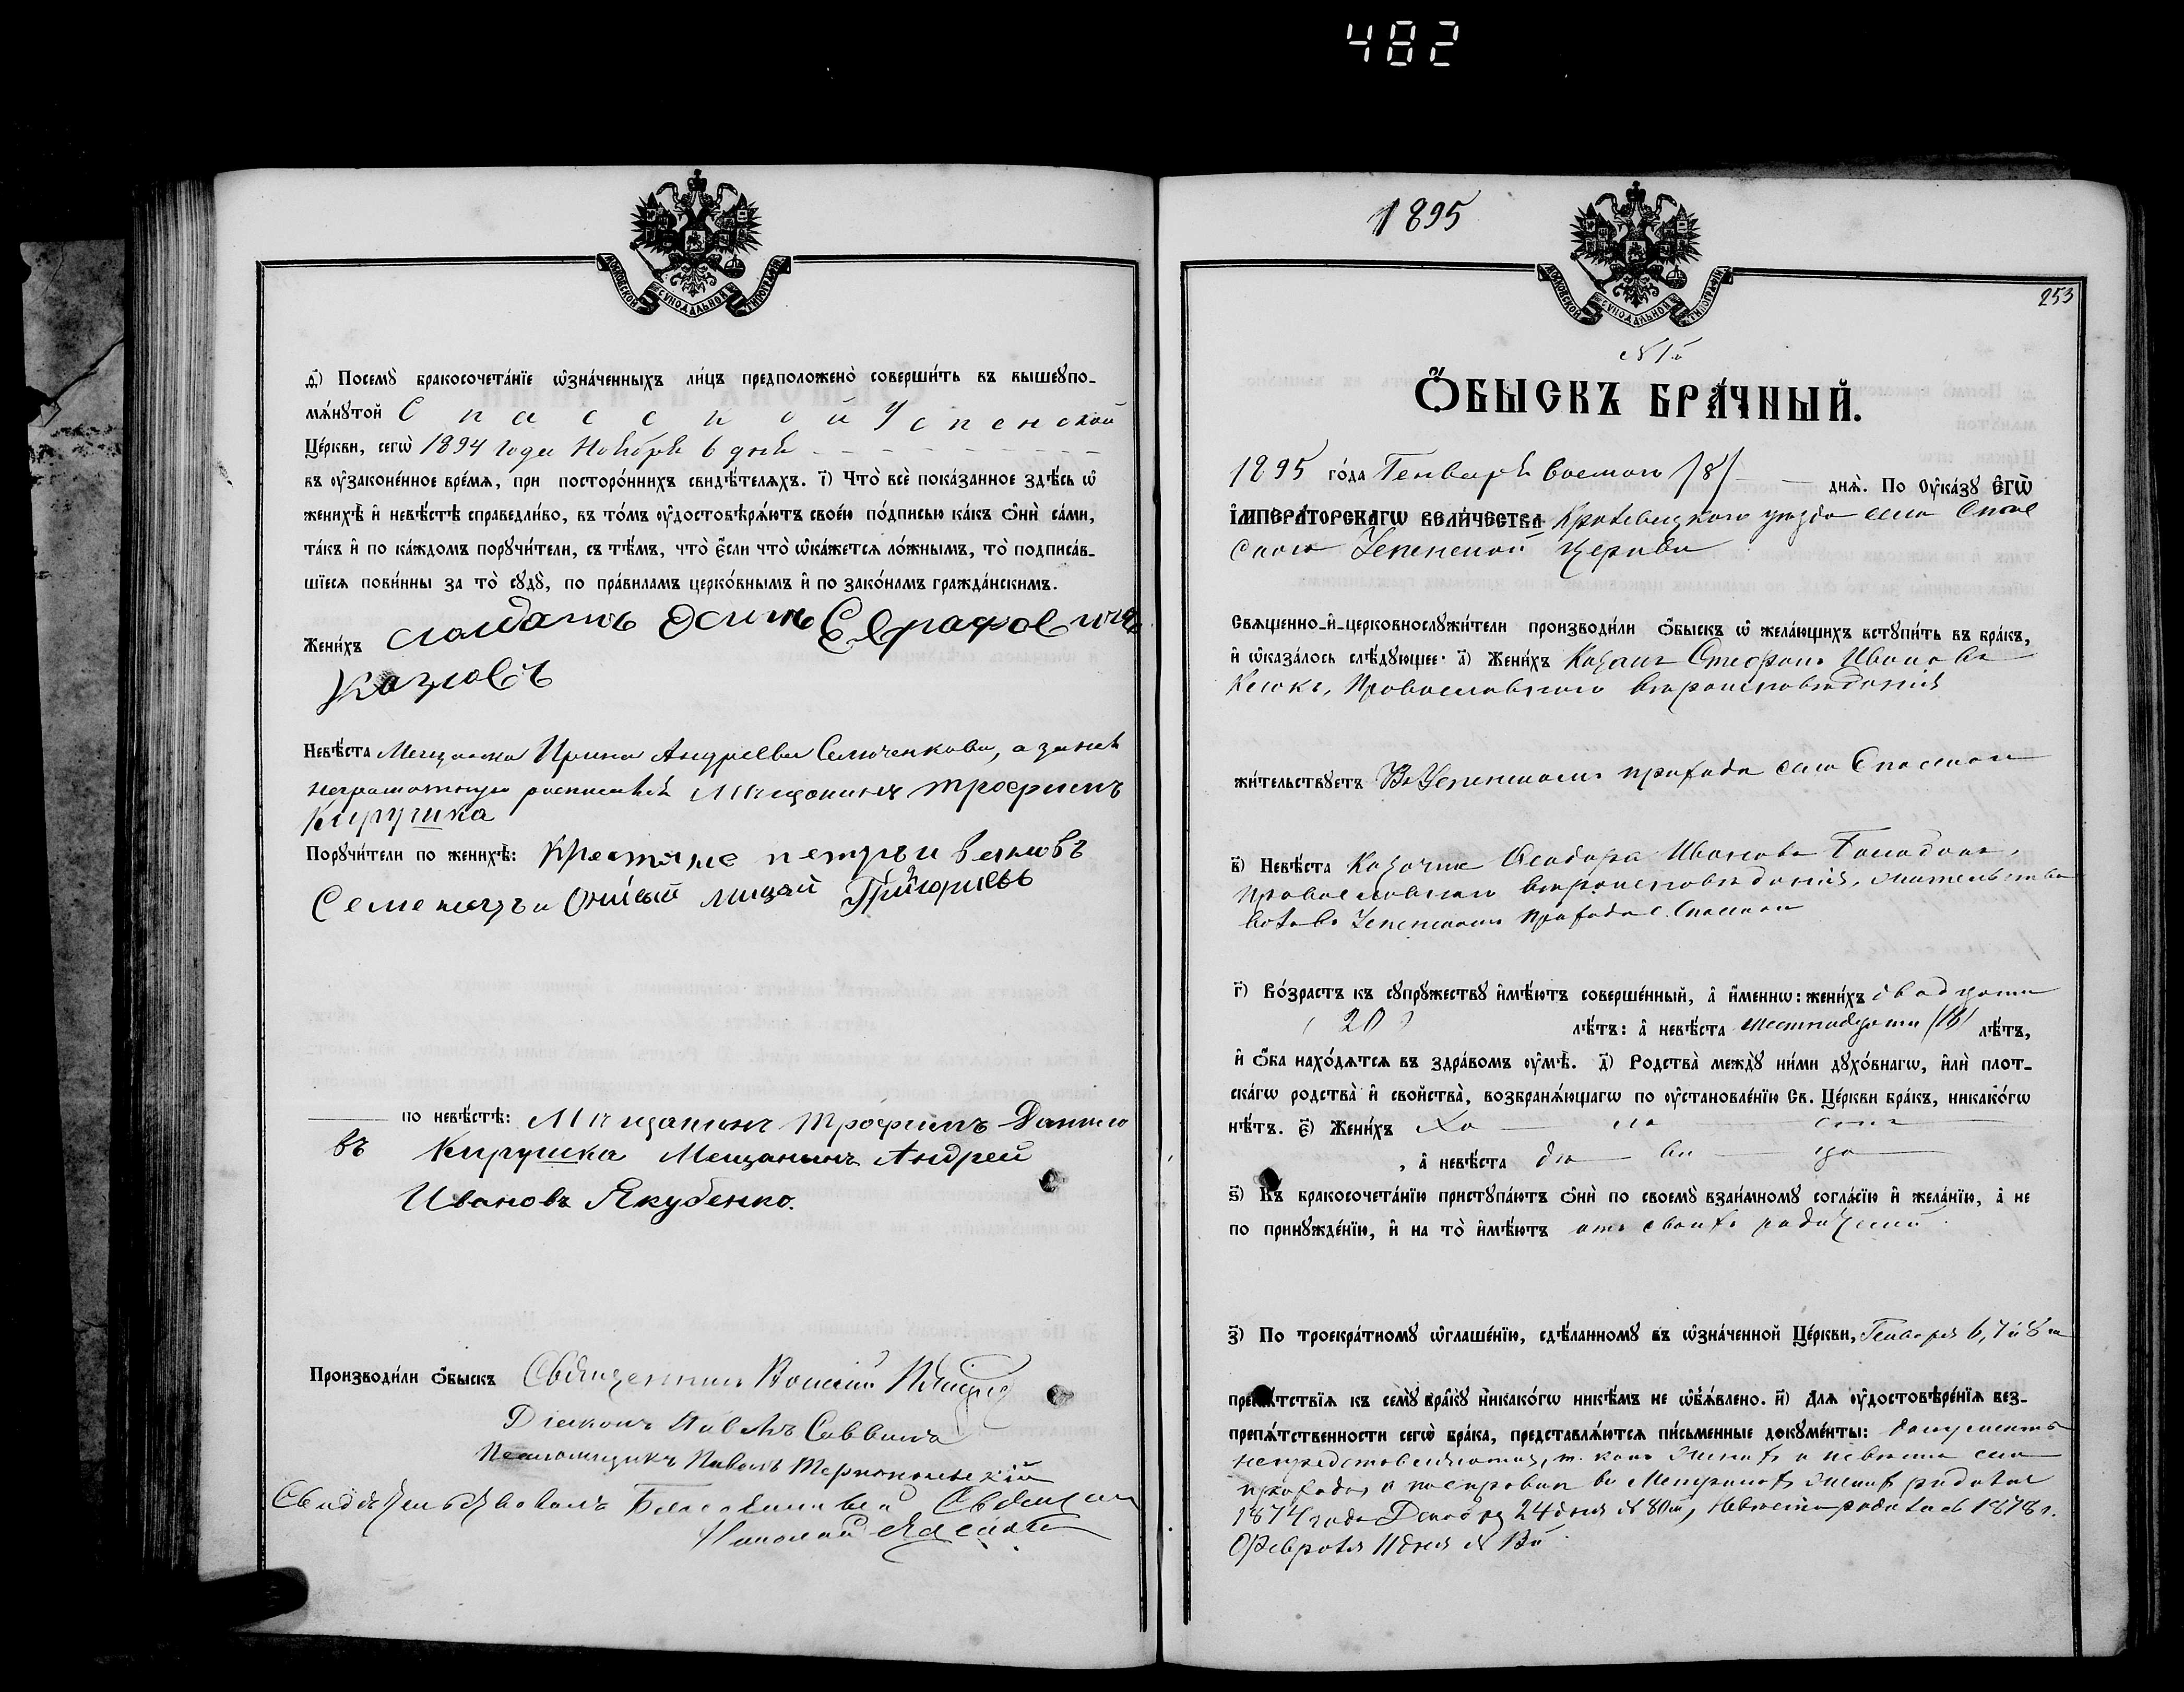 482
МОСКОВСКОЙ СѴНОДАЛЬНОЙ ТИПОГРАФІИ
д҃) Посемꙋ̀ бракосочета́нїе ѡ҆зна́ченныхъ ли́цъ предположено̀ соверши́ть въ вышеꙋпо-
мѧ́нꙋтой Спасской Успенской
Це́ркви, сегѡ̀ 1894 года Ноября 6 дня
въ ᲂу҆законе́нное вре́мѧ, при посторо́ннихъ свидѣ́телѧхъ. і҃) Что̀ всѐ пока́занное здѣ́сь ѡ҆
женихѣ̀ и҆ невѣ́стѣ справедли́во, въ то́мъ ᲂу҆достовѣрѧ́ютъ свое́ю по́дписью ка́къ ѻ҆нѝ са́ми,
та́къ и҆ по ка́ждомъ порꙋчи́тели, съ тѣ́мъ, что̀ є҆́сли что̀ ѡ҆ка́жетсѧ ло́жнымъ, то̀ подписа́в-
шїесѧ пови́нны за то̀ сꙋдꙋ̀, по пра́виламъ церко́внымъ и҆ по зако́намъ гражда́нскимъ.
Жени́хъ солдатъ
Козловъ
Невѣ́ста Мещанка Ирина Андреева Семченкова, а за неѣ
неграмотную росписался Мещанинъ трофимъ
Кирушка
Порꙋчи́тели по женихѣ̀: Крестяне петръ и
Григориевъ
по невѣ́стѣ: Мещанинъ трофимъ Данило
въ Кирушка Мещанинъ Андрей
Ивановъ Якубенко.
Производи́ли ѻ҆́быскъ Священникъ
Діаконъ Павелъ Саввичъ
Псаломщикъ Павелъ
Свидѣтельствовалъ Благочинный Священ
Николай
1895
МОСКОВСКОЙ СѴНОДАЛЬНОЙ ТИПОГРАФІИ
253
№ 1й
Ѻ҆́БЫСКЪ БРА́ЧНЫЙ.
1895 го́да Генваря восмого /8/ днѧ̀. По ᲂу҆ка́зꙋ є҆гѡ̀
і҆мпера́торскагѡ вели́чества Кролевецкого уезда села Спас
ского Успенской церкви
Свѧще́нно-и҆-церковнослꙋжи́тели производи́ли ѻ҆́быскъ ѡ҆ жела́ющихъ встꙋпи́ть въ бра́къ,
и҆ ѡ҆каза́лось слѣ́дꙋющее: а҃) Жени́хъ Козакъ Стефанъ Ивановъ
Православного вероисповедания
жи́тельствꙋетъ Въ Успенскомъ приходе села Спаского
в҃) Невѣ́ста Козачка Феодора Иванова
Православного вероисповедания, жительство
Успенскомъ приходе с. Спаского
г҃) Во́зрастъ къ сꙋпрꙋ́жествꙋ и҆мѣ́ютъ соверше́нный, а҆ и҆́меннѡ: жени́хъ двадцати
(20) лѣ́тъ: а҆ невѣ́ста шестнадцати (16) лѣ́тъ,
и҆ ѻ҆́ба нахо́дѧтсѧ въ здра́вомъ ᲂу҆мѣ̀. д҃) Родства̀ междꙋ̀ ни́ми дꙋхо́внагѡ, и҆лѝ плот-
ска́гѡ родства̀ и҆ свойства̀, возбранѧ́ющагѡ по ᲂу҆становле́нїю Св. Це́ркви бра́къ, никако́гѡ
нѣ́тъ. є҃) Жени́хъ Хо ло стъ
, а҆ невѣ́ста дѣ ви ца
ѕ҃) Къ бракосочета́нїю пристꙋпа́ютъ ѻ҆нѝ по своемꙋ̀ взаи́мномꙋ согла́сїю и҆ жела́нїю, а҆ не
по принꙋжде́нїю, и҆ на то̀ и҆мѣ́ютъ отъ своихъ родителей
з҃) По троекра́тномꙋ ѡ҆глаше́нїю, сдѣ́ланномꙋ въ ѡ҆зна́ченной Це́ркви, Генваря 6, 7 и 8 го
препѧ́тствїѧ къ семꙋ̀ бра́кꙋ никако́гѡ никѣ́мъ не ѡ҆б̾ѧ́влено. и҃) Для ᲂу҆достовѣре́нїѧ без-
препѧ́тственности сегѡ̀ бра́ка, представлѧ́ютсѧ пи́сьменные докꙋме́нты: документы
не представляются, т. како женихъ и невеста сего
прихода, и по справки въ Метрикахъ женихъ родился
1874 года Декабря 24 дня № 80й, Невеста родилась 1878 г.
Февраля 11 дня № 13й